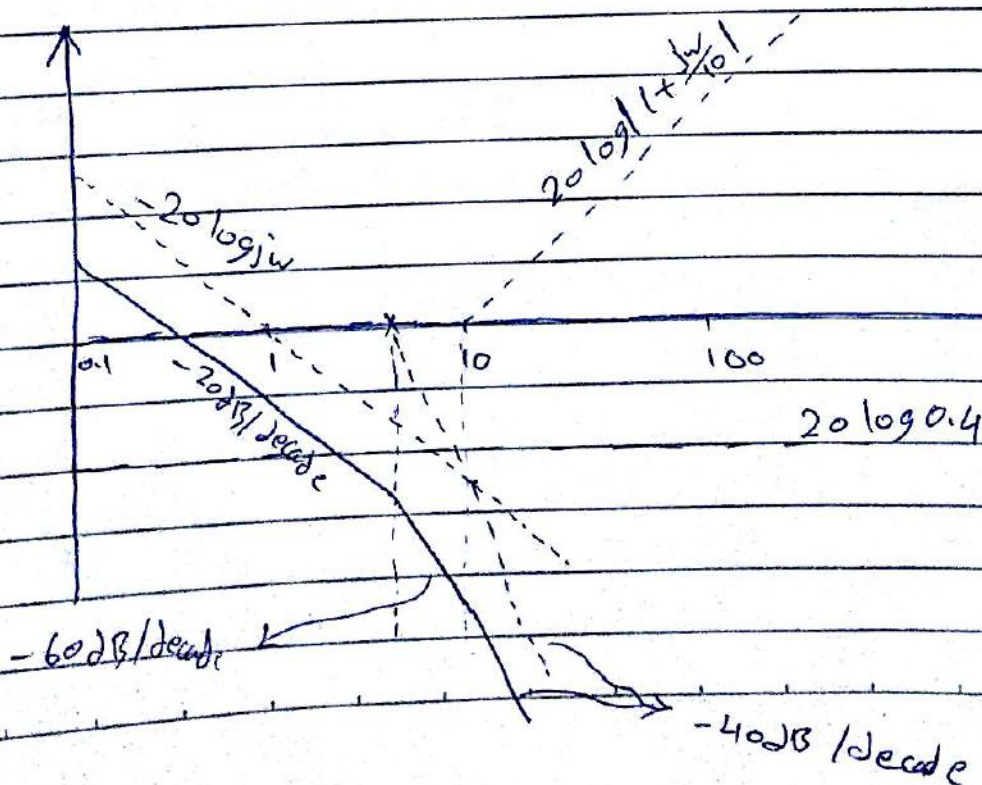 20 log|1+jw/10|
-20 logjw
0.1
1
10
100
-20dB/decade
20 log 0.4
-60dB/decade
-40dB/decade